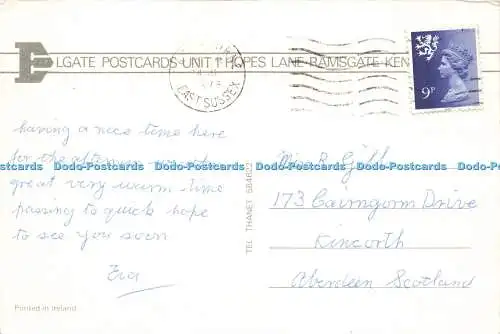 ELGATE POSTCARDS UNIT 1 HOPES LANE RAMSGATE KEN
EAST SUSSEX
9P
having a nice time here
for the afternoon
great very warm time
passing to quick hope
to see you soon
TEL THANET 584622
Miss R Gill
173 Cairngorm Drive
Kincorth
Aberdeen Scotland
Printed in Ireland
Dodo-Postcards Dodo-Postcards Dodo-Postcards Dodo-Postcards Dodo-Postcards Dodo-Postcards